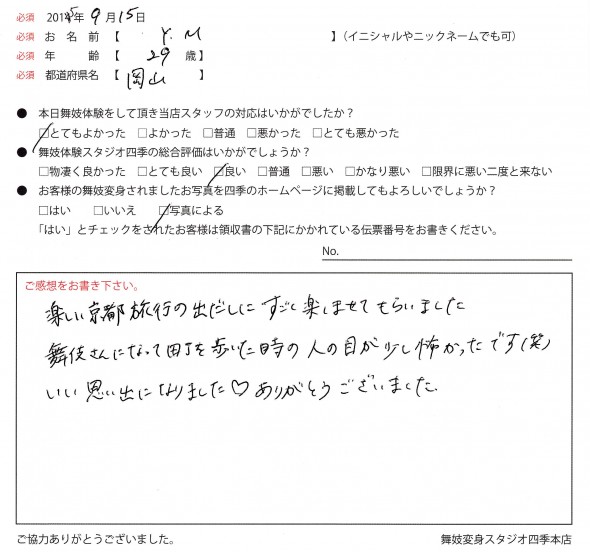 必須 2015年 9月15日
必須 お名前【 Y. M 】(イニシャルやニックネームでも可)
必須 年齢【 29 歳】
必須 都道府県名【 岡山 】
● 本日舞妓体験をして頂き当店スタッフの対応はいかがでしたか?
☑とてもよかった □よかった □普通 □悪かった □とても悪かった
● 舞妓体験スタジオ四季の総合評価はいかがでしょうか?
□物凄く良かった □とても良い ☑良い □普通 □悪い □かなり悪い □限界に悪い二度と来ない
● お客様の舞妓変身されましたお写真を四季のホームページに掲載してもよろしいでしょうか?
□はい □いいえ ☑写真による
「はい」とチェックをされたお客様は領収書の下記にかかれている伝票番号をお書きください。
No.
ご感想をお書き下さい。
楽しい京都旅行の出だしにすごく楽しませてもらいました
舞伎さんになって町を歩いた時の人の目が少し怖かったです(笑)
いい思い出になりました♡ありがとうございました。
ご協力ありがとうございました。
舞妓変身スタジオ四季本店